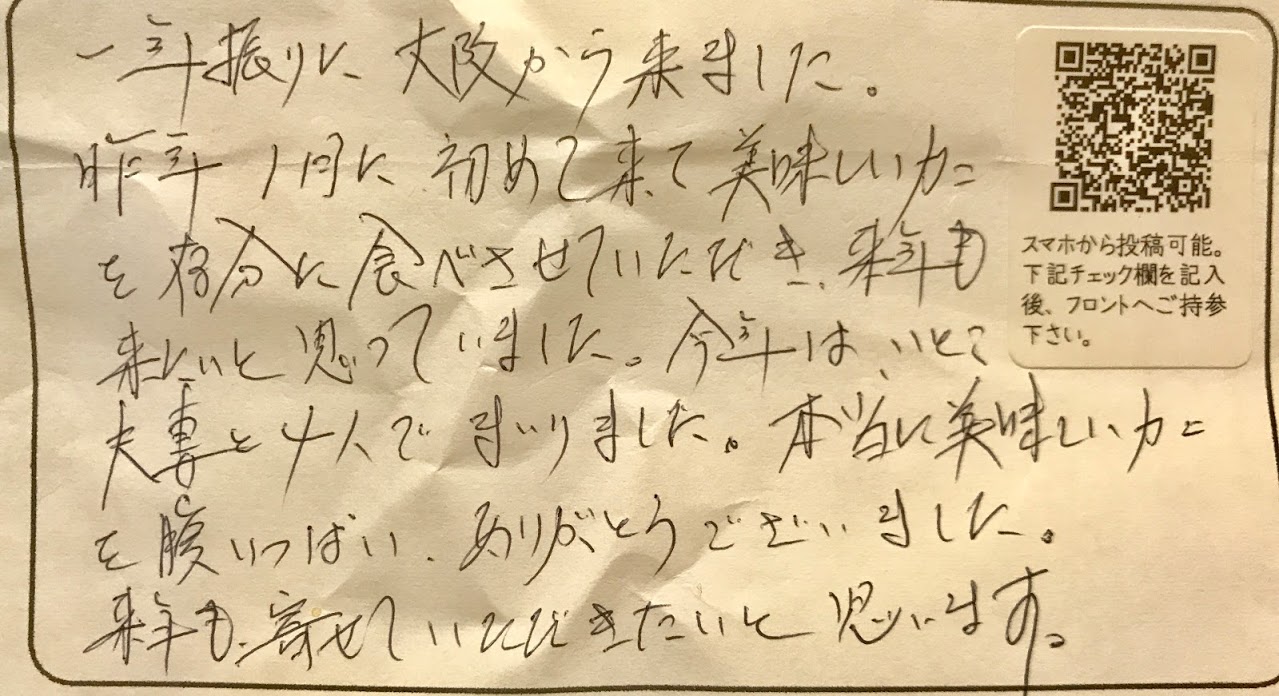 一年振りに、大阪から来ました。
昨年1月に初めて来て美味しいカニ
を存分に食べさせていただき、来年も
来たいと思っていました。今年は、いとこ
夫妻と4人でまいりました。本当に美味しいカニ
を腹いっぱい、ありがとうございました。
来年も、寄せていただきたいと思います。
スマホから投稿可能。
下記チェック欄を記入
後、フロントへご持参
下さい。